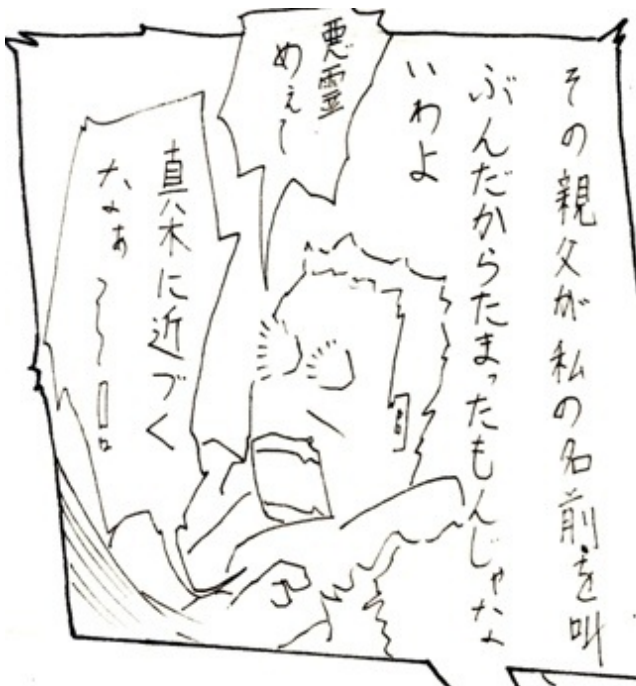 その親父が私の名前を叫
ぶんだからたまったもんじゃな
いわよ
悪霊
めぇ〜
真木に近づく
なぁ〜〜!!